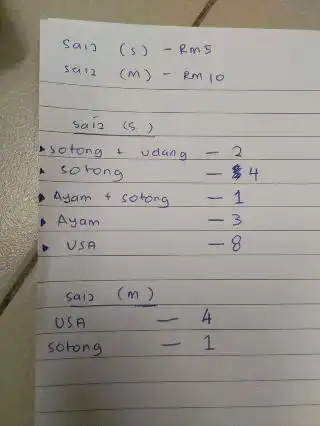 saiz (s) - RM5
saiz (M) - RM10
saiz (s)
sotong + udang - 2
sotong - 4
Ayam + sotong - 1
Ayam - 3
USA - 8
saiz (M)
USA - 4
sotong - 1